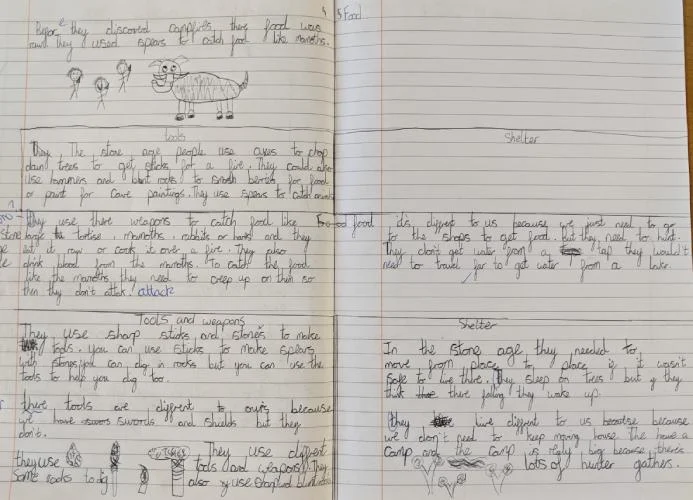 5 Food
Before they discovered campfires, there food was
raw they used spears to catch food like mamoths.
tools
They The stone age people use axes to chop
down trees to get sticks for a fire. They could also
use hammers and blunt rocks to smash berries for food
or paint for cave paintings. They use spears to catch
Shelter
They use there weapons to catch food like
large tortise, mamoths, rabbits or and they
eat it raw or cook it over a fire. They also
drink blood from the mamoths. To catch the food
like the mamoths they need to creep up on them so
then they don't attack. attack
food
it's diffrent to us because we just need to go
to the shops to get food. But they need to hunt.
They don't get water from a tap they wouldn't
need to travel far to get water from a lake.
Tools and weapons
They use sharp sticks and stones to make
tools. you can use sticks to make spears
with stones you can dig in rocks but you can use the
tools to help you dig too.
there tools are diffrent to ours because
we have swords and shields but they
don't.
they use
Some rocks to dig
They use diffrent
tools and weapons. They
also use
Shelter
In the stone age they needed to
move from place to place if it wasn't
safe to live there. They sleep on trees but if they
think there falling they wake up.
they live diffrent to us because
we don't need to keep moving house. The have a
camp and the camp is really big because there's
lots of hunter gathers.